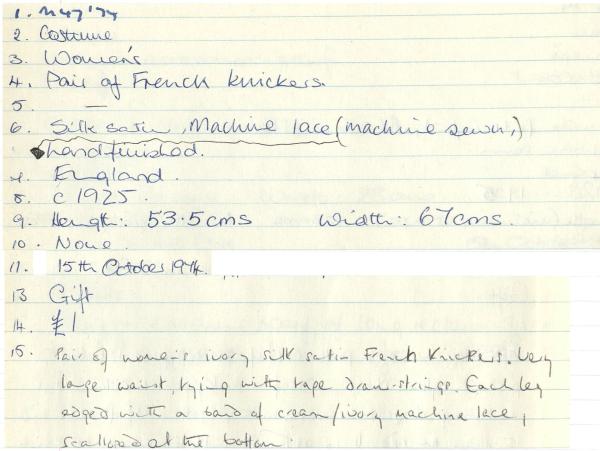 1. M47'74
2. Costume
3. Women's
4. Pair of French knickers.
5. —
6. Silk satin, Machine lace (machine sewn,)
hand finished.
7. England.
8. c 1925.
9. Length: 53.5cms Width: 67cms.
10. None.
11. 15th October 1974.
13 Gift
14. £1
15. Pair of women's ivory silk satin French Knickers. Very
large waist, tying with tape draw-strings. Each leg
edged with a band of cream/ivory machine lace,
scalloped at the bottom.